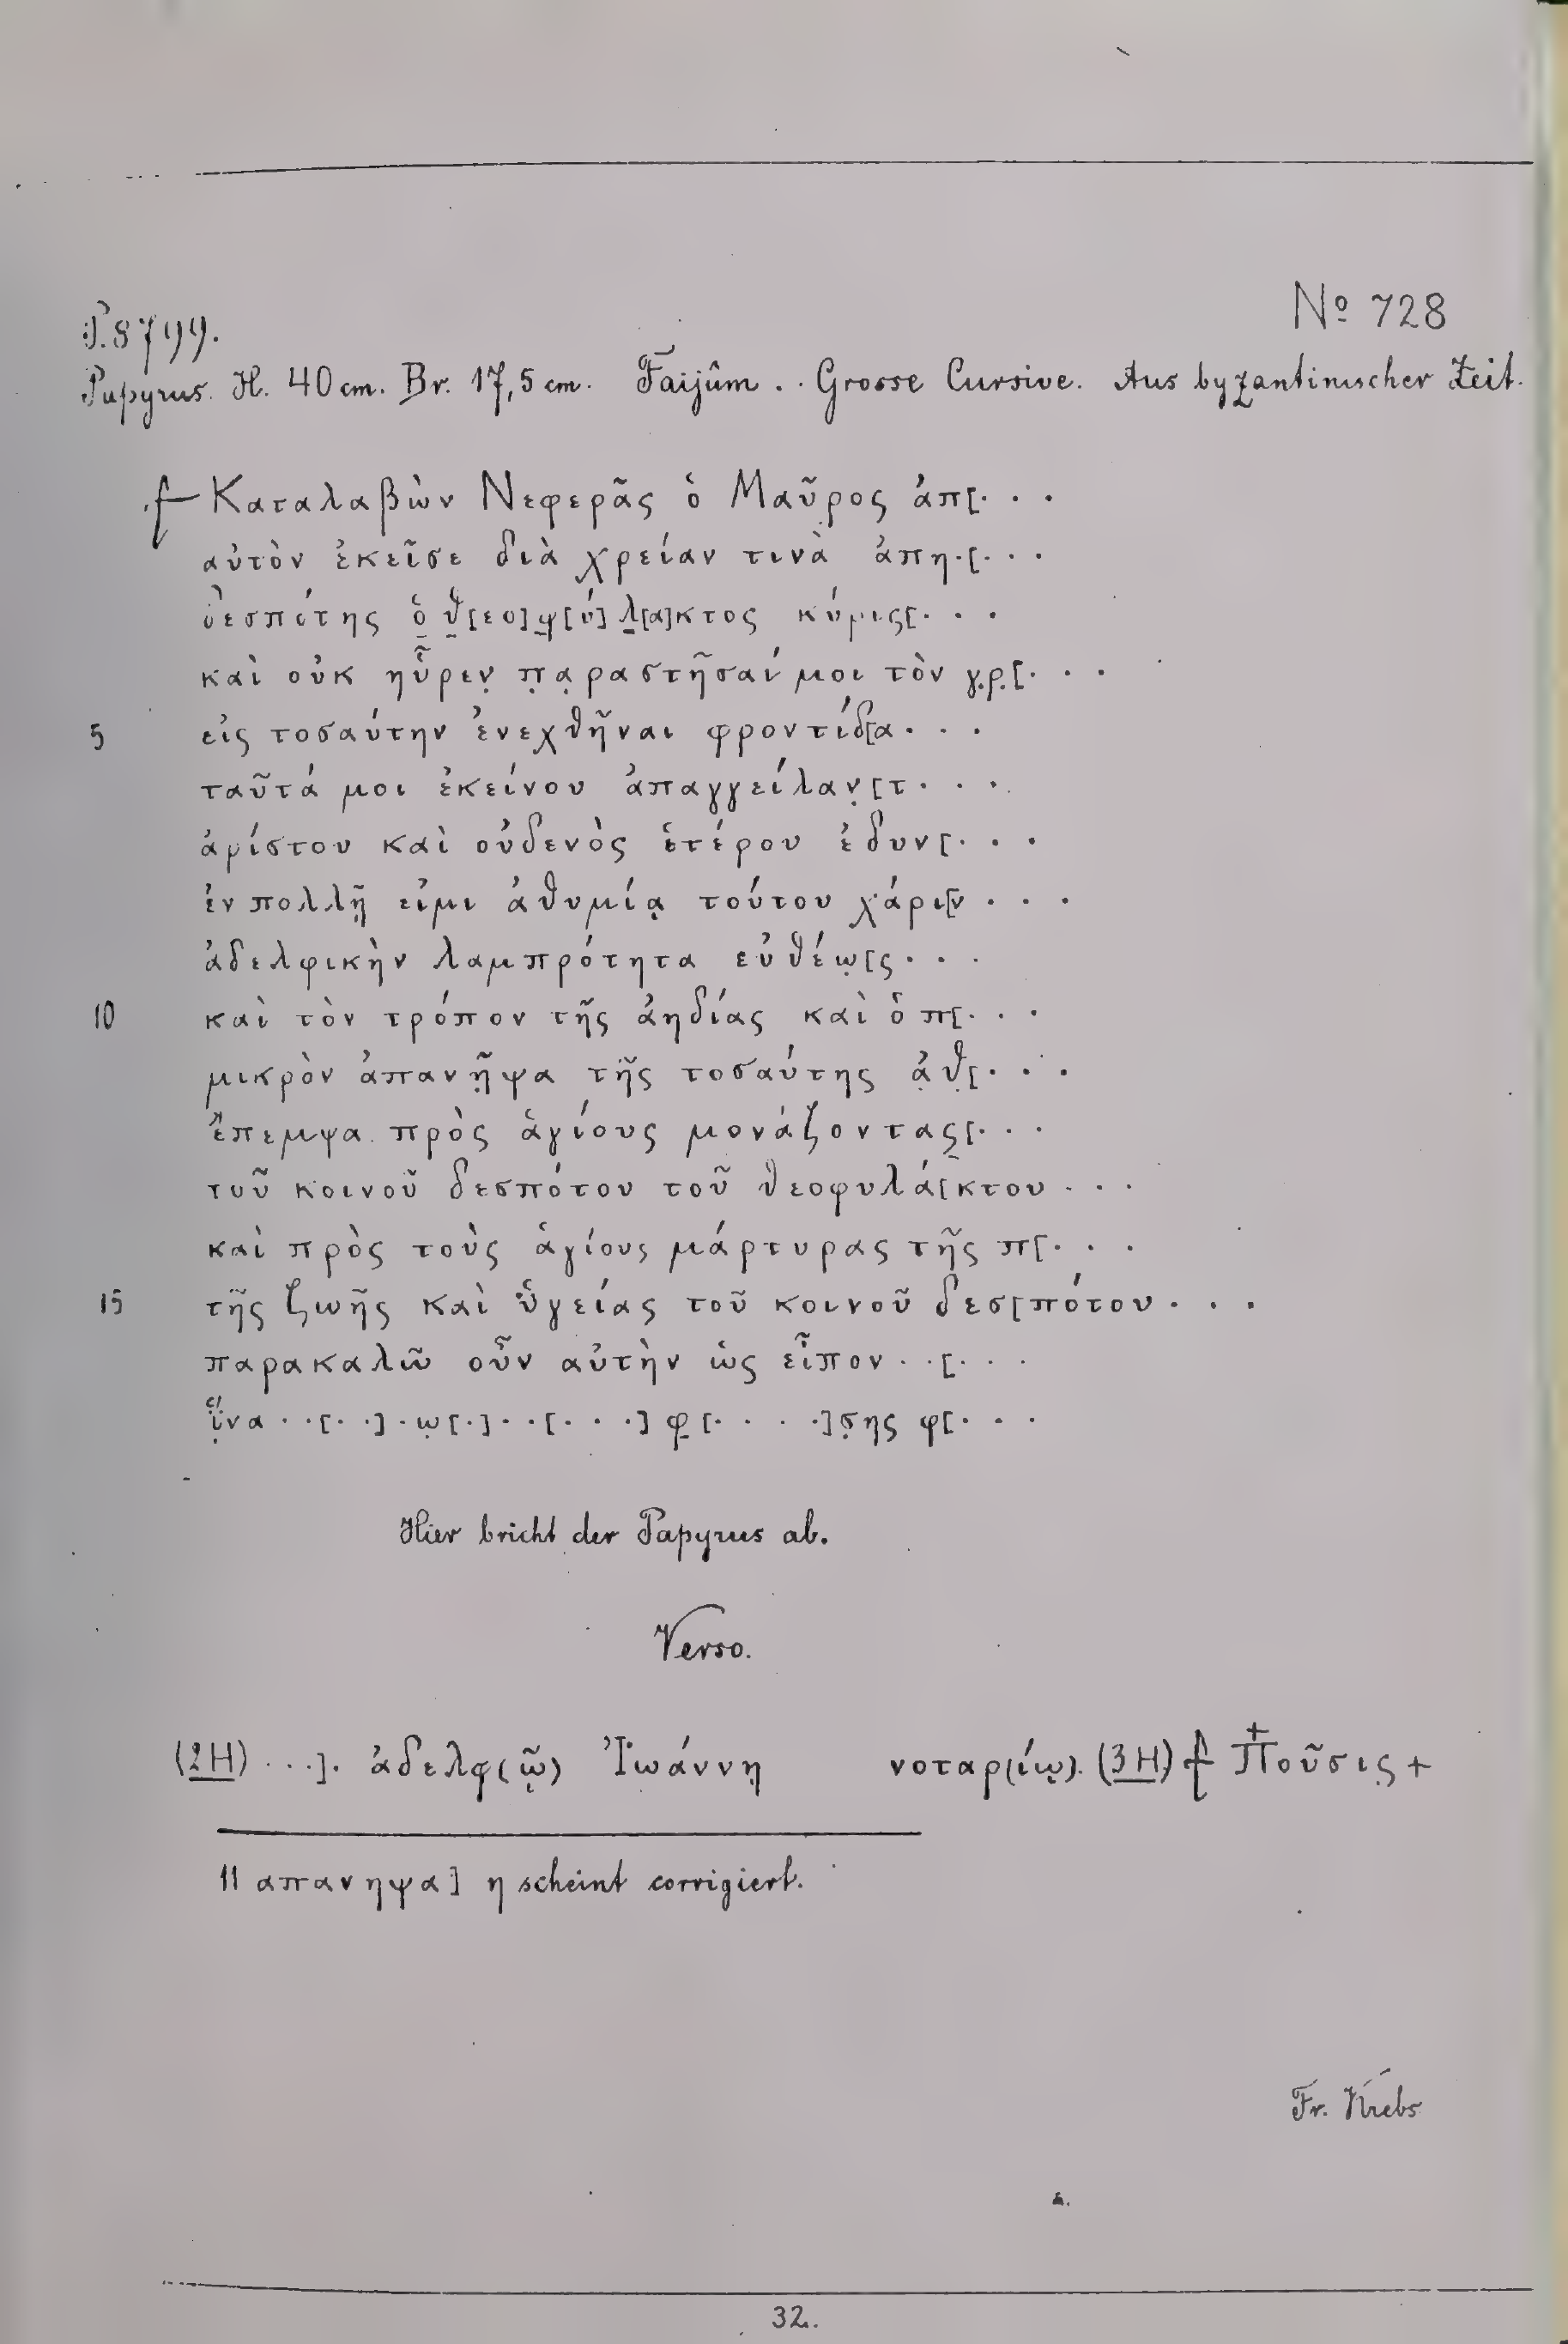 № 728
P. 8799.
Papyrus. H. 40 cm. Br. 17,5 cm. Faijûm. . Grosse Cursive. Aus byzantinischer Zeit.
⳨ Καταλαβὼν Νεφερᾶς ὁ Μαῦρος ἀπ[. . .
αὐτὸν ἐκεῖσε διὰ χρείαν τινὰ ἀπη.[. . .
δεσπότης ὁ̣ θ̣[εο]φ̣[ύ]λ̣[α]κτος κύρις[. . .
καὶ οὐκ ηὗριν̣ π̣α̣ραστῆσαί μοι τὸν γ̣ρ̣[. . .
5 εἰς τοσαύτην ἐνεχθῆναι φροντίδ[α. . .
ταῦτά μοι ἐκείνου ἀπαγγείλαν̣[τ. . .
ἀρίστου καὶ οὐδενὸς ἑτέρου ἐδυν[. . .
ἐν πολλῇ εἰμι ἀθυμίᾳ τούτου χάρι[ν . . .
ἀδελφικὴν λαμπρότητα εὐθέω̣[ς. . .
10 καὶ τὸν τρόπον τῆς ἀηδίας καὶ ὁ π[. . .
μικρὸν ἀπανῆ̣ψα τῆς τοσαύτης ἀ̣θ̣[. . .
ἔπεμψα πρὸς ἁγίους μονάζοντας̣[. . .
τοῦ κοινοῦ δεσπότου τοῦ θεοφυλά[κτου . . .
καὶ πρὸς τοὺς ἁγίους μάρτυρας τῆς π[. . .
15 τῆς ζωῆς καὶ ὑγείας τοῦ κοινοῦ δεσ[πότου. . .
παρακαλῶ οὖν αὐτὴν ὡς εἶπον . .[. . .
ἵ̣να . .[. .] . ω̣[.] . .[. . .] φ̣[. . . .]σ̣ης φ[. . .
Hier bricht der Papyrus ab.
Verso.
(2 H) . . .]. ἀδελφ(ῷ) Ἰωάννῃ νοταρ(ίῳ). (3 H) ⳨ Ποῦσις +
11 απανηψα] η scheint corrigiert.
Fr. Krebs
32.